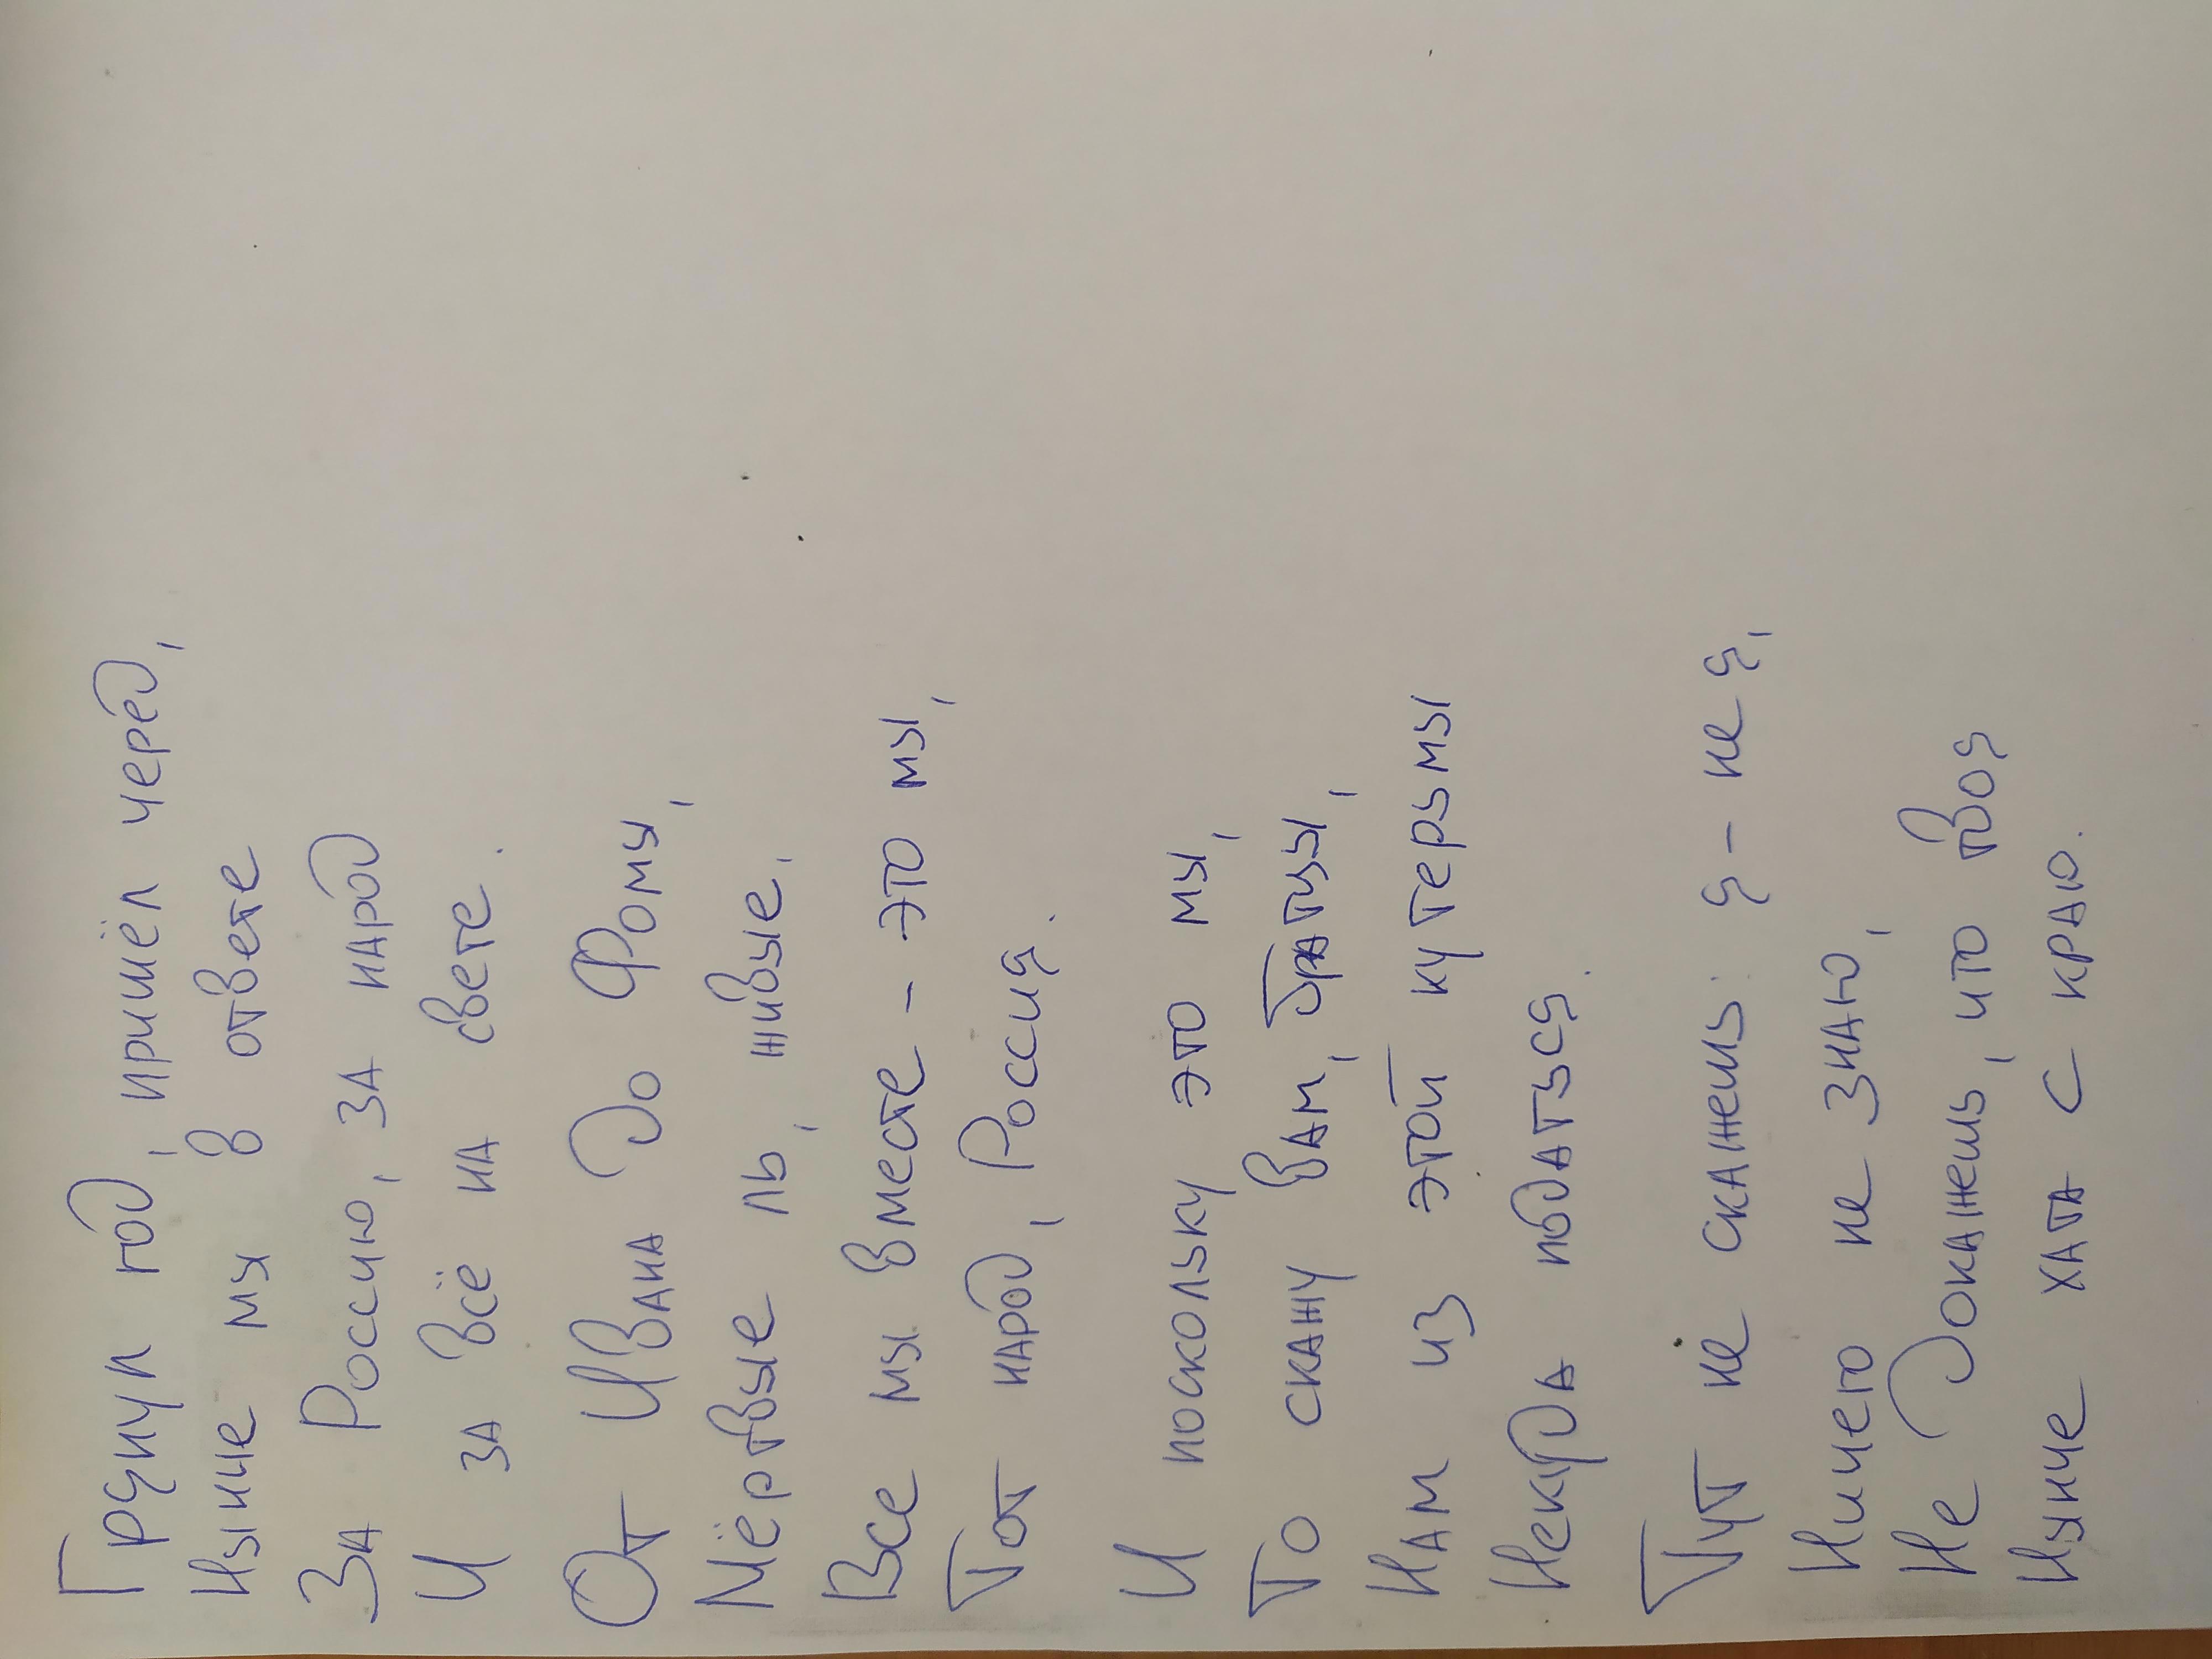 Грянул год, пришёл черёд,
Нынче мы в ответе
За Россию, за народ
И за всё на свете.
От Ивана до Фомы,
Мёртвые ль, живые,
Все мы вместе - это мы,
Тот народ, Россия.
И поскольку это мы,
То скажу вам, братцы,
Нам из этой кутерьмы
Некуда податься.
Тут не скажешь: я - не я,
Ничего не знаю,
Не докажешь, что твоя
Нынче хата с краю.